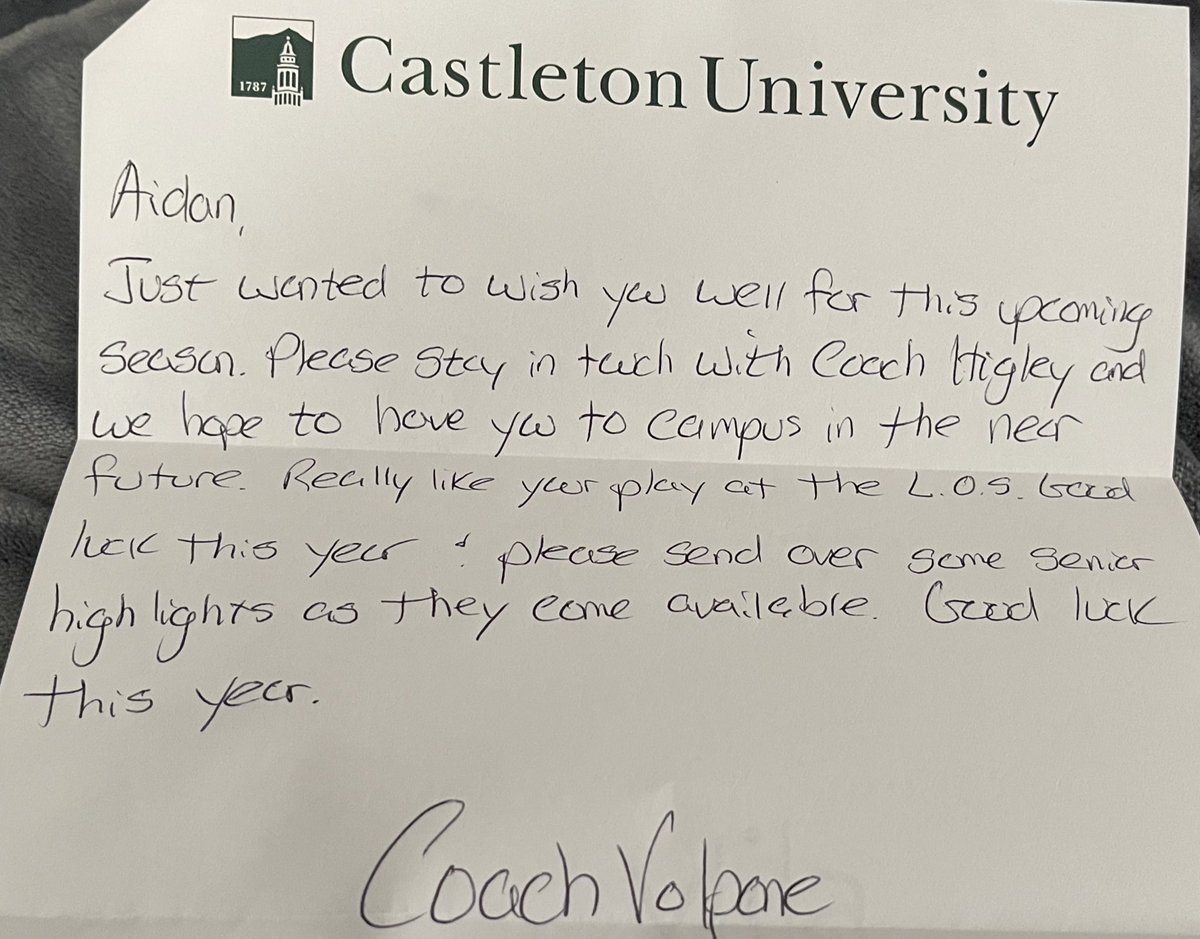 1787
Castleton University
Aidan,
Just wanted to wish you well for this upcoming
season. Please stay in touch with Coach Higley and
we hope to have you to campus in the near
future. Really like your play at the L.O.S. Good
luck this year & please send over some senior
highlights as they come available. Good luck
this year.
Coach Volpone